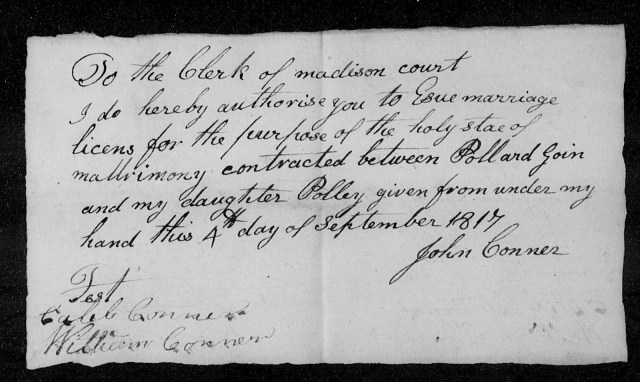 To the Clerk of madison court
I do hereby authorise you to Esue marriage
licens for the purpose of the holy stae of
mattrimony contracted between Pollard Goin
and my daughter Polley given from under my
hand this 4th day of September 1817
John Conner
Test
Caleb Conner
William Conner